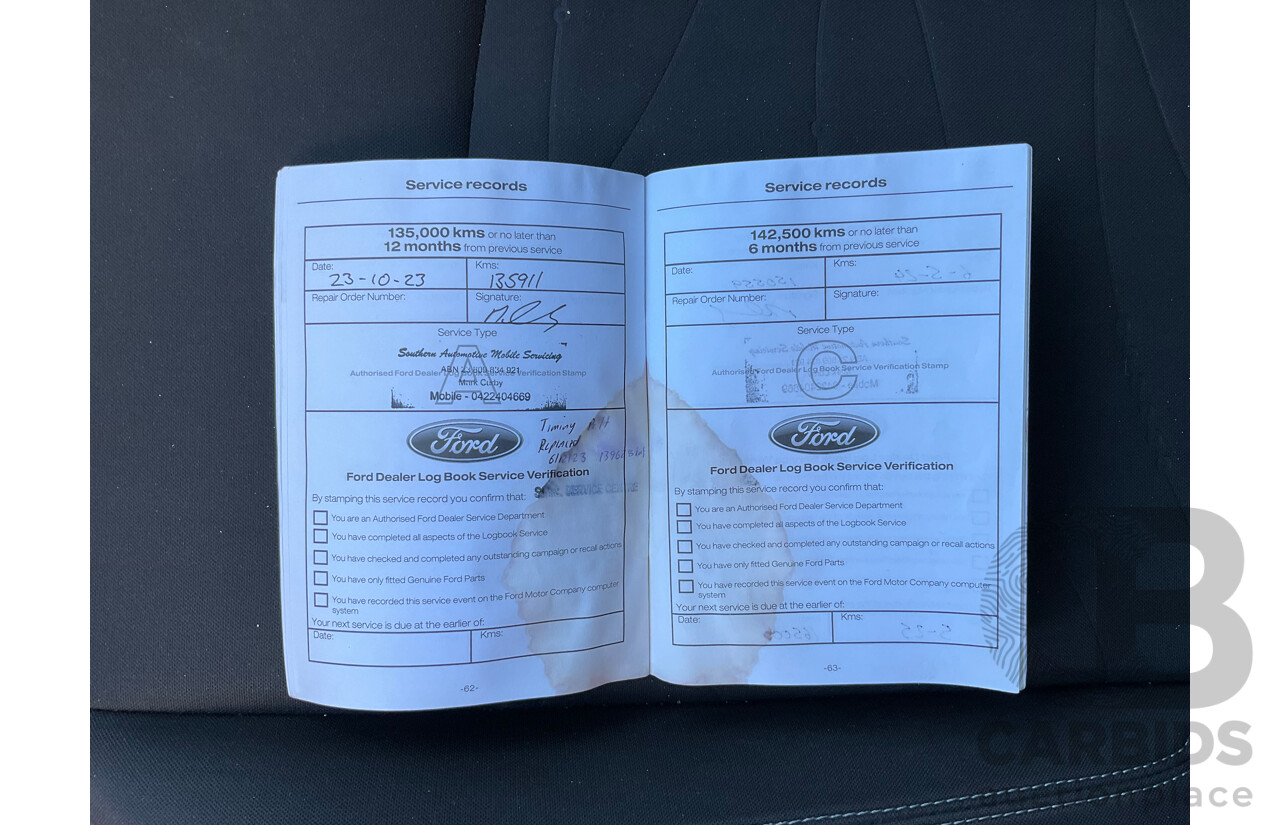 Service records
135,000 kms or no later than
12 months from previous service
Date:
23-10-23
Kms:
135911
Repair Order Number:
Signature:
Service Type
A
Southern Automotive Mobile Servicing
Authorised Ford Dealer Log Book Service Verification Stamp
ABN 23 809 834 921
Mark Curby
Mobile - 0422404669
Ford
Timing Belt
Replaced
Ford Dealer Log Book Service Verification
By stamping this service record you confirm that:
You are an Authorised Ford Dealer Service Department
You have completed all aspects of the Logbook Service
You have checked and completed any outstanding campaign or recall actions
You have only fitted Genuine Ford Parts
You have recorded this service event on the Ford Motor Company computer
system
Your next service is due at the earlier of:
Date:
Kms:
-62-
Service records
142,500 kms or no later than
6 months from previous service
Date:
Kms:
Repair Order Number:
Signature:
Service Type
C
Authorised Ford Dealer Log Book Service Verification Stamp
Ford
Ford Dealer Log Book Service Verification
By stamping this service record you confirm that:
You are an Authorised Ford Dealer Service Department
You have completed all aspects of the Logbook Service
You have checked and completed any outstanding campaign or recall actions
You have only fitted Genuine Ford Parts
You have recorded this service event on the Ford Motor Company computer
system
Your next service is due at the earlier of:
Date:
Kms:
-63-
CB
CARBIDS